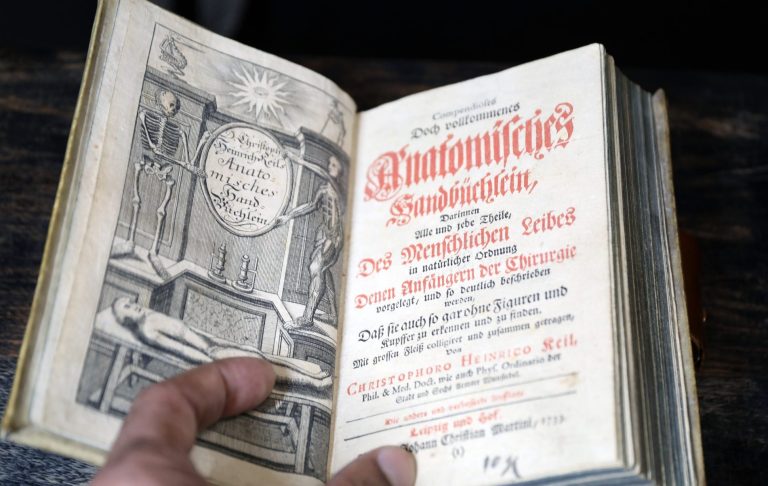 D. Christoph
Heinrich Keils
Anato-
misches
Hand-
Büchlein.
Compendioses
Doch vollkommenes
Anatomisches
Handbüchlein,
Darinnen
Alle und jede Theile,
Des Menschlichen Leibes
in natürlicher Ordnung
Denen Anfängern der Chirurgie
vorgelegt, und so deutlich beschrieben
werden,
Daß sie auch so gar ohne Figuren und
Kupffer zu erkennen und zu finden.
Mit grossen Fleiß colligiret und zusammen getragen,
Von
CHRISTOPHORO HEINRICO Keil,
Phil. & Med. Doct, wie auch Phys. Ordinatio der
Stadt und Sechs Aemter Wunsiedel.
Die andere und verbesserte Aufflage
Leipzig und Hof.
Johann Christian Martini, 1733.